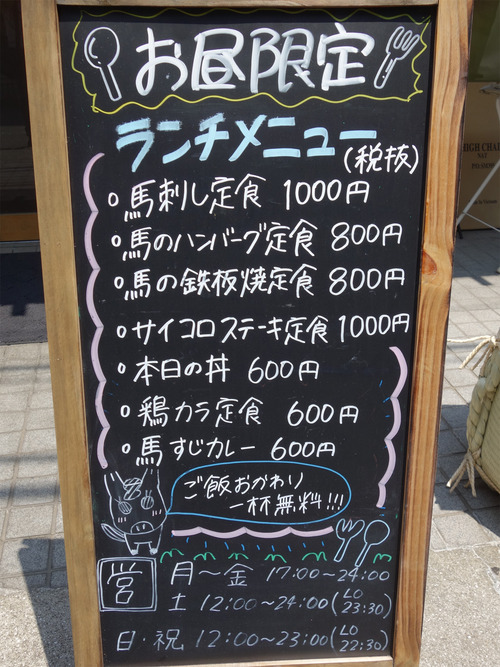 お昼限定
ランチメニュー
(税抜)
○馬刺し定食 1000円
○馬のハンバーグ定食 800円
○馬の鉄板焼定食 800円
○サイコロステーキ定食 1000円
○本日の丼 600円
○鶏カラ定食 600円
○馬すじカレー 600円
ご飯おかわり
一杯無料!!!
営 月〜金 17:00〜24:00
土 12:00〜24:00(LO 23:30)
日・祝 12:00〜23:00(LO 22:30)
HIGH CHAI